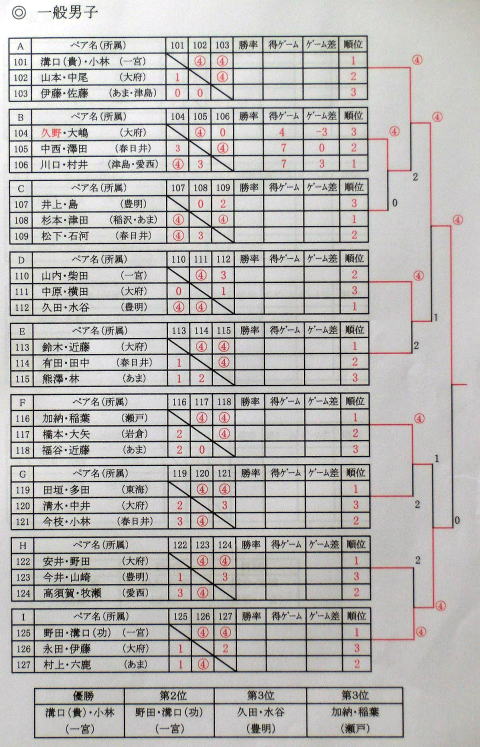 ◎ 一般男子
A ペア名(所属) 101 102 103 勝率 得ゲーム ゲーム差 順位
101 溝口(貴)・小林 (一宮) ④ ④ 1
102 山本・中尾 (大府) 1 ④ 2
103 伊藤・佐藤 (あま・津島) 0 0 3
B ペア名(所属) 104 105 106 勝率 得ゲーム ゲーム差 順位
104 久野・大嶋 (大府) ④ 0 4 -3 3
105 中西・澤田 (春日井) 3 ④ 7 0 2
106 川口・村井 (津島・愛西) ④ 3 7 3 1
C ペア名(所属) 107 108 109 勝率 得ゲーム ゲーム差 順位
107 井上・島 (豊明) 0 2 3
108 杉本・津田 (稲沢・あま) ④ ④ 1
109 松下・石河 (春日井) ④ 3 2
D ペア名(所属) 110 111 112 勝率 得ゲーム ゲーム差 順位
110 山内・柴田 (一宮) ④ 3 2
111 中原・横田 (大府) 0 1 3
112 久田・水谷 (豊明) ④ ④ 1
E ペア名(所属) 113 114 115 勝率 得ゲーム ゲーム差 順位
113 鈴木・近藤 (大府) ④ ④ 1
114 有田・田中 (春日井) 1 ④ 2
115 熊澤・林 (あま) 1 2 3
F ペア名(所属) 116 117 118 勝率 得ゲーム ゲーム差 順位
116 加納・稲葉 (瀬戸) ④ ④ 1
117 橋本・大矢 (岩倉) 2 ④ 2
118 福谷・近藤 (あま) 2 0 3
G ペア名(所属) 119 120 121 勝率 得ゲーム ゲーム差 順位
119 田垣・多田 (東海) ④ ④ 1
120 清水・中井 (大府) 2 3 3
121 今枝・小林 (春日井) 3 ④ 2
H ペア名(所属) 122 123 124 勝率 得ゲーム ゲーム差 順位
122 安井・野田 (大府) ④ ④ 1
123 今井・山崎 (豊明) 1 3 3
124 高須賀・牧瀬 (愛西) 3 ④ 2
I ペア名(所属) 125 126 127 勝率 得ゲーム ゲーム差 順位
125 野田・溝口(功) (一宮) ④ ④ 1
126 永田・伊藤 (大府) 1 2 3
127 村上・六鹿 (あま) 1 ④ 2
④
④
④
2
0
④
④
1
2
④
1
2
0
2
④
④
優勝 第2位 第3位 第3位
溝口(貴)・小林 野田・溝口(功) 久田・水谷 加納・稲葉
(一宮) (一宮) (豊明) (瀬戸)